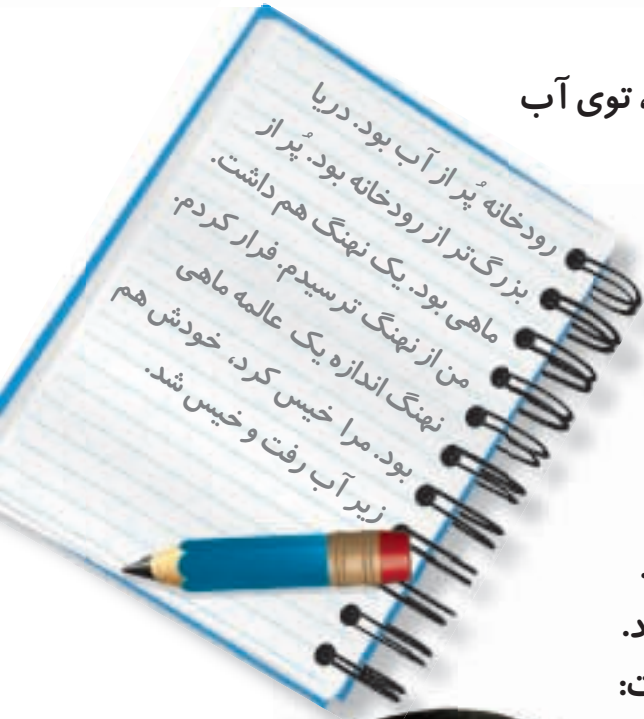 ، توی آب
رودخانه پُر از آب بود. دریا
بزرگ‌تر از رودخانه بود. پُر از
ماهی بود. یک نهنگ هم داشت.
من از نهنگ ترسیدم. فرار کردم.
نهنگ اندازه یک عالمه ماهی
بود. مرا خیس کرد، خودش هم
زیر آب رفت و خیس شد.
.
د.
ت: